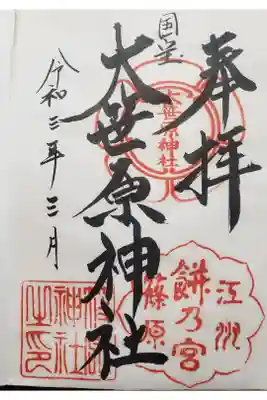 奉拝
国宝
大笹原神社
大笹原神社
令和三年三月
江州
餅乃宮
篠原
神社
之印